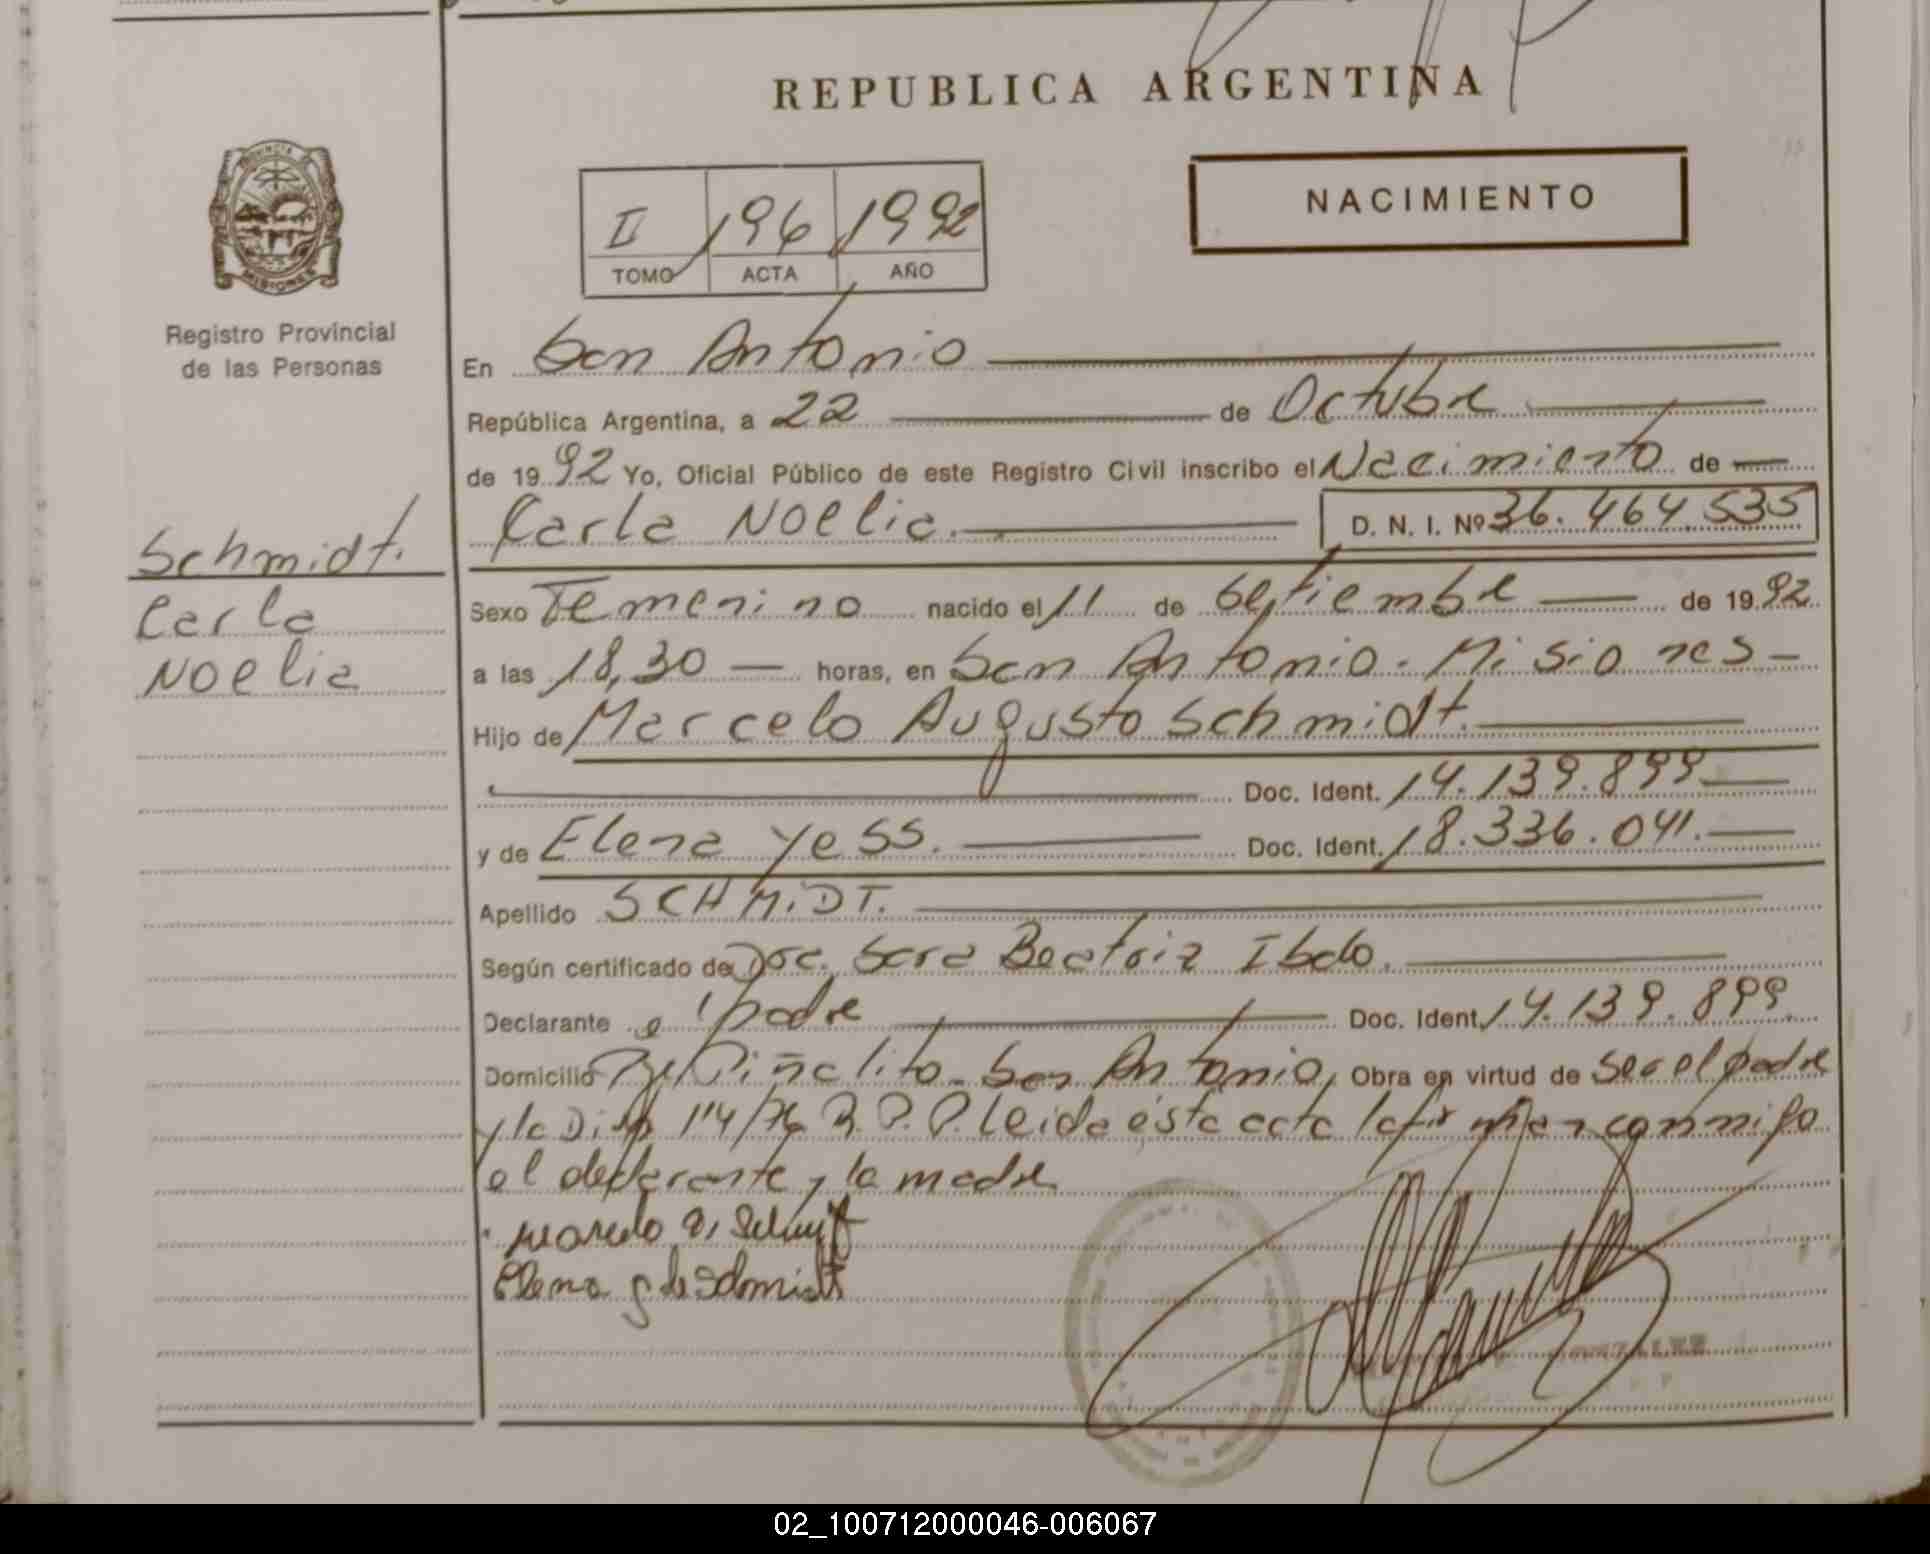 REPUBLICA ARGENTINA
NACIMIENTO
II 196 1992
TOMO ACTA AÑO
PROVINCIA DE
MISIONES
Registro Provincial
de las Personas
Schmidt.
Carla
Noelia
En San Antonio
República Argentina, a 22 de Octubre
de 1992 Yo, Oficial Público de este Registro Civil inscribo el Nacimiento de
Carla Noelia. D. N. I. Nº 36.464.535
Sexo Femenino nacido el 11 de Septiembre de 1992
a las 18,30 horas, en San Antonio - Misiones -
Hijo de Marcelo Augusto Schmidt.
Doc. Ident. 14.139.899
y de Elena Yess. Doc. Ident. 18.336.041.
Apellido SCHMIDT.
Según certificado de Doc. Sara Beatriz Ibalo.
Declarante el padre Doc. Ident. 14.139.899.
Domicilio Piñalito - San Antonio, Obra en virtud de ser el padre
y la Disp 114/76 R.P.P. Leida ésta acta la firman conmigo
el declarante y la madre
Marcelo A. Schmidt
Elena Y de Schmidt
GONZALEZ
02_100712000046-006067